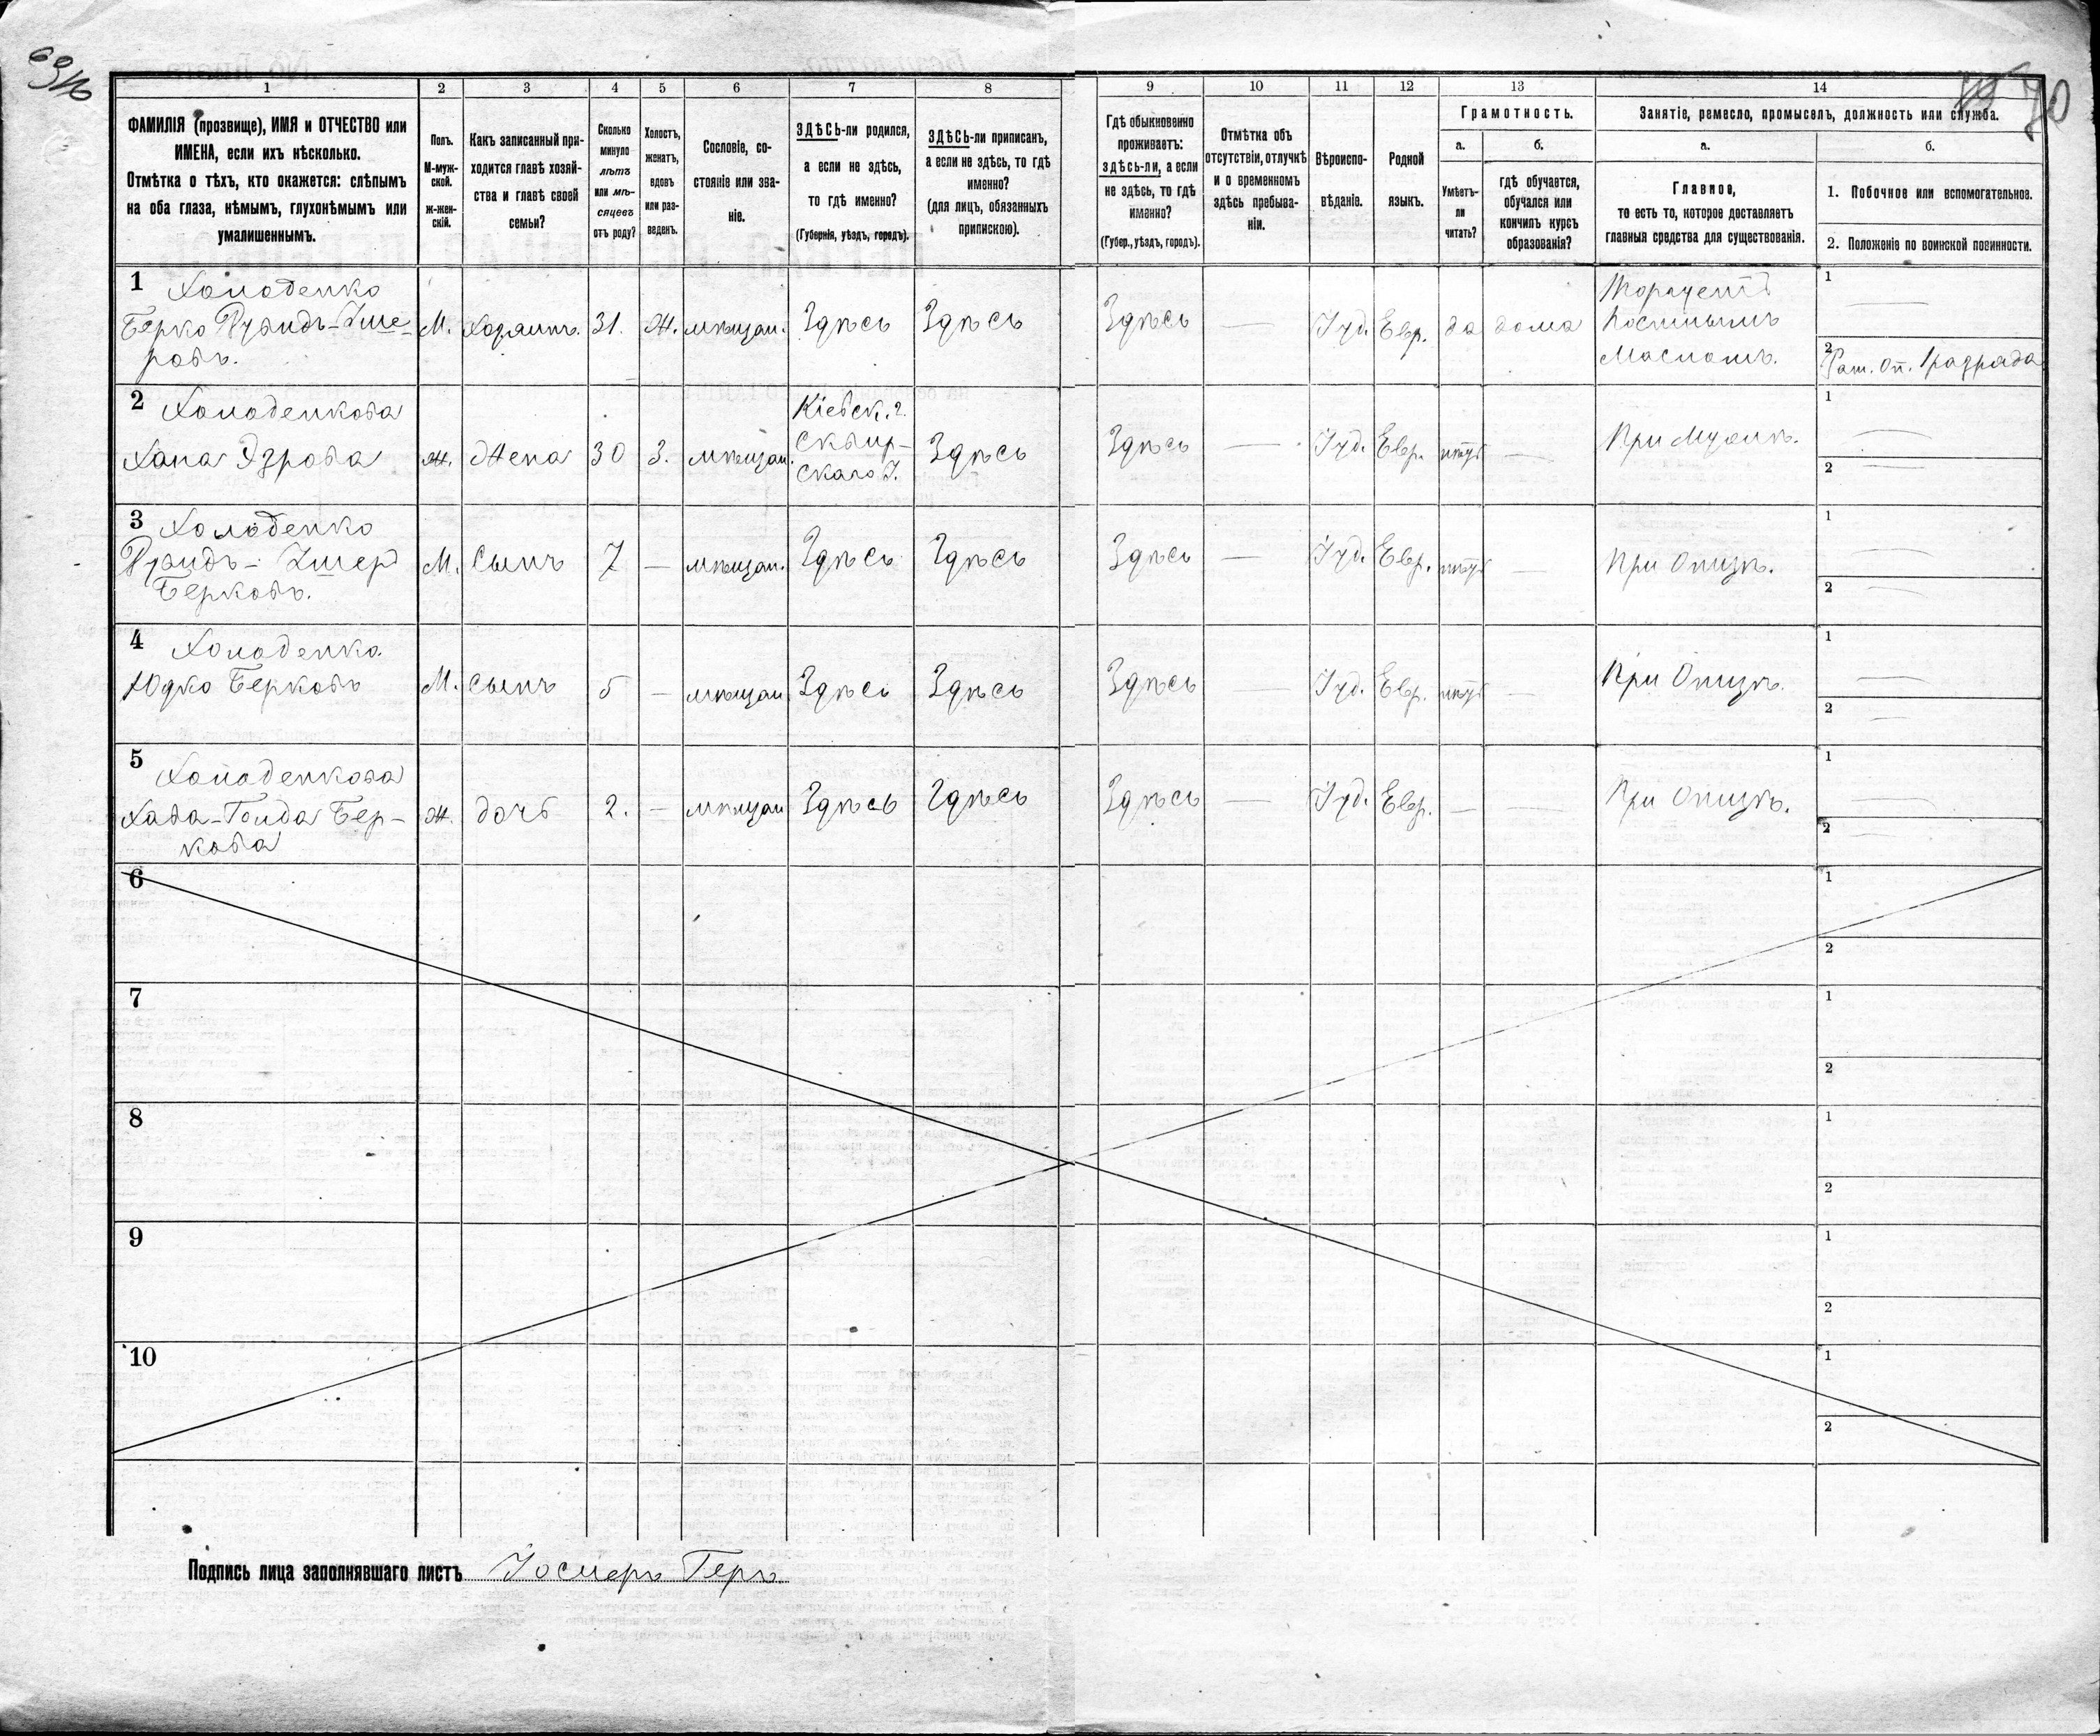 70
1 2 3 4 5 6 7 8 9 10 11 12 13 14
ФАМИЛІЯ (прозвище), ИМЯ и ОТЧЕСТВО или
ИМЕНА, если ихъ нѣсколько.
Отмѣтка о тѣхъ, кто окажется: слѣпымъ
на оба глаза, нѣмымъ, глухонѣмымъ или
умалишеннымъ.
Полъ.
М-муж-
ской.
ж-жен-
скій.
Какъ записанный при-
ходится главѣ хозяй-
ства и главѣ своей
семьи?
Сколько
минуло
лѣтъ
или мѣ-
сяцевъ
отъ роду?
Холостъ,
женатъ,
вдовъ
или раз-
веденъ.
Сословіе, со-
стояніе или зва-
ніе.
ЗДѢСЬ-ли родился,
а если не здѣсь,
то гдѣ именно?
(Губернія, уѣздъ, городъ).
ЗДѢСЬ-ли приписанъ,
а если не здѣсь, то гдѣ
именно?
(для лицъ, обязанныхъ
припискою).
Гдѣ обыкновенно
проживаетъ:
здѣсь-ли, а если
не здѣсь, то гдѣ
именно?
(Губер., уѣздъ, городъ).
Отмѣтка объ
отсутствіи, отлучкѣ
и о временномъ
здѣсь пребыва-
ніи.
Вѣроиспо-
вѣданіе.
Родной
языкъ.
Грамотность.
а.
Умѣетъ-
ли
читать?
б.
гдѣ обучается,
обучался или
кончилъ курсъ
образованія?
Занятіе, ремесло, промыселъ, должность или служба.
а.
Главное,
то есть то, которое доставляетъ
главныя средства для существованія.
б.
1. Побочное или вспомогательное.
2. Положеніе по воинской повинности.
1 Холоденко
Берко -Уше-
ровъ.
М. Хозяинъ. 31. Ж. мѣщан. Здѣсь Здѣсь Здѣсь — Іуд. Евр. да дома
Торгуетъ
Постнымъ
Масломъ.
1 —
2 Рат. Оп. 1 разряда
2 Холоденкова
Хана
ж. Жена 30 З. мѣщан.
Кіевск. г.
Сквир-
скаго У.
Здѣсь Здѣсь — Іуд. Евр. нѣтъ — При Мужѣ.
1 —
2 —
3 Холоденко
Ушер
Берковъ.
М. Сынъ 7 — мѣщан. Здѣсь Здѣсь Здѣсь — Іуд. Евр. нѣтъ — При Отцѣ.
1 —
2 —
4 Холоденко
Юдко Берковъ
М. Сынъ 5 — мѣщан Здѣсь Здѣсь Здѣсь — Іуд. Евр. нѣтъ — При Отцѣ.
1 —
2 —
5 Холоденкова
Хава-Голда Бер-
кова
ж. дочь 2. — мѣщан Здѣсь Здѣсь Здѣсь — Іуд. Евр. — — При Отцѣ.
1 —
2 —
6 1
2
7 1
2
8 1
2
9 1
2
10 1
2
Подпись лица заполнявшаго листъ